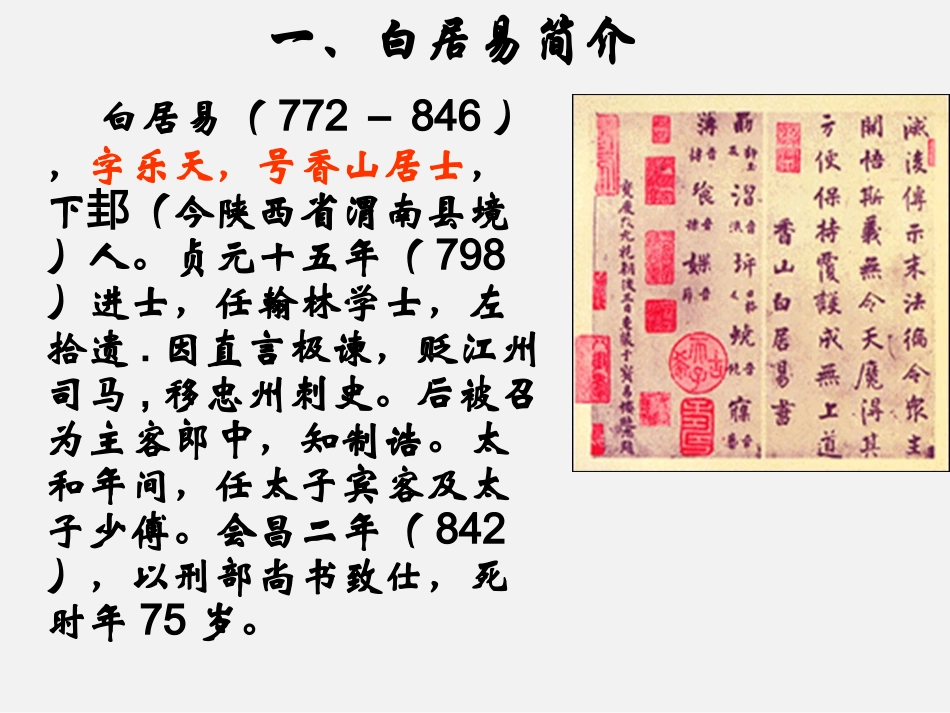 一、白居易简介
白居易（772 – 846）
，字乐天，号香山居士，
下邽（今陕西省渭南县境
）人。贞元十五年（798
）进士，任翰林学士，左
拾遗.因直言极谏，贬江州
司马,移忠州刺史。后被召
为主客郎中，知制诰。太
和年间，任太子宾客及太
子少傅。会昌二年（842
），以刑部尚书致仕，死
时年75岁。
滅後傳示末法徧令衆生
開悟斯義無令天魔得其
方便保持覆護成無上道
香山白居易書